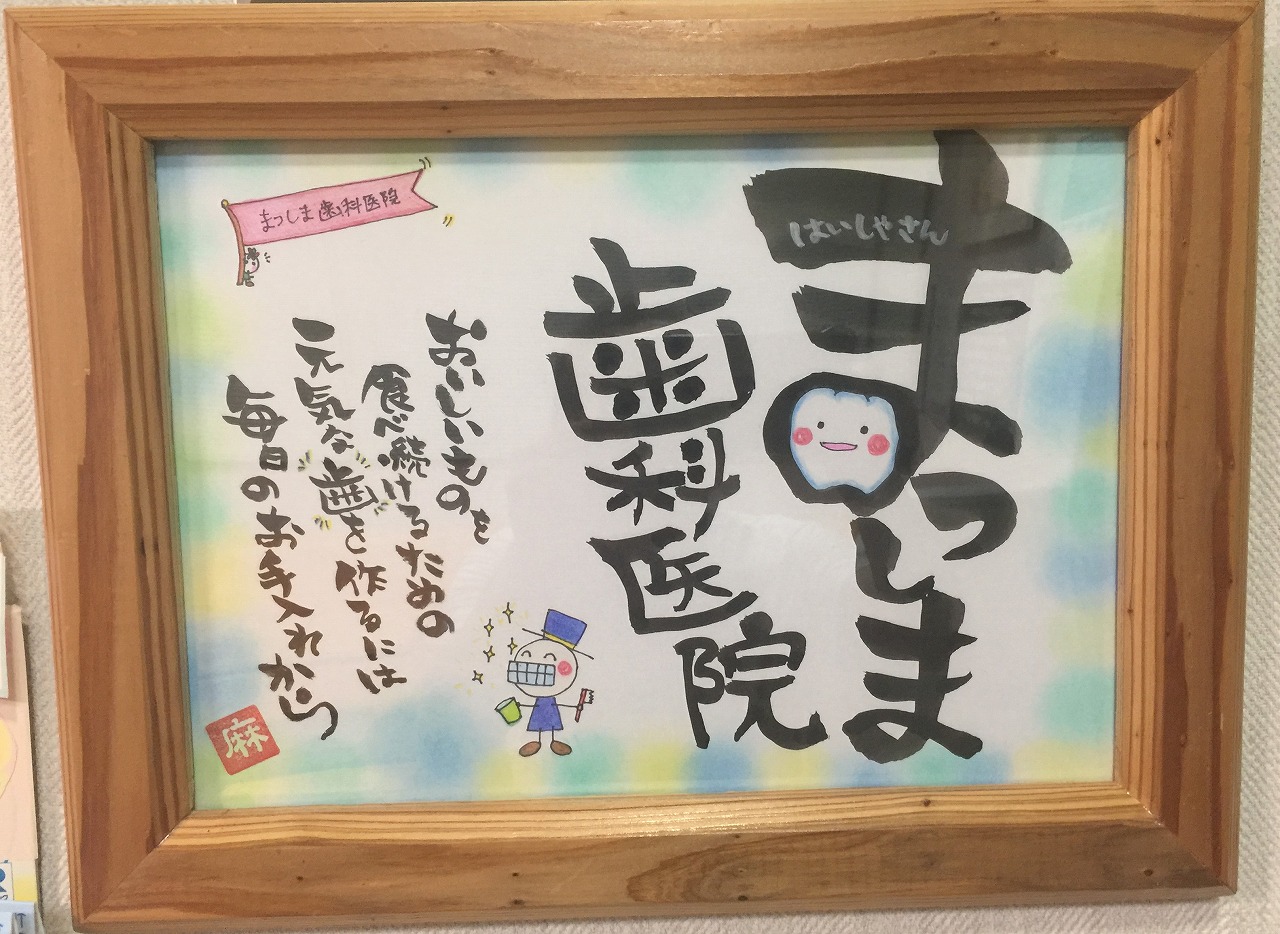 まつしま
はいしゃさん
歯科医院
おいしいものを
食べ続けるための
元気な歯を作るには
毎日のお手入れから
まつしま歯科医院
麻